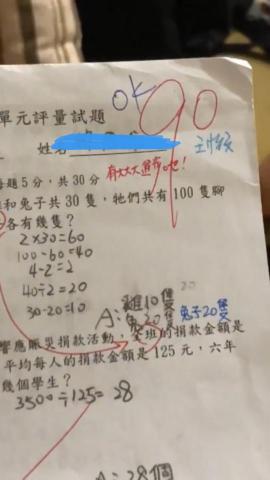 OK 90
單元評量試題
姓名
有大大進步吔!
每題5分，共30分
和兔子共30隻，牠們共有100隻腳
各有幾隻？
2×30=60
100-60=40
4-2=2
40÷2=20
30-20=10
20
A:雞10隻
兔20隻 兔子20隻
響應賑災捐款活動，全班的捐款金額是
平均每人的捐款金額是125元，六年
幾個學生？
3500÷125=28
A:28個